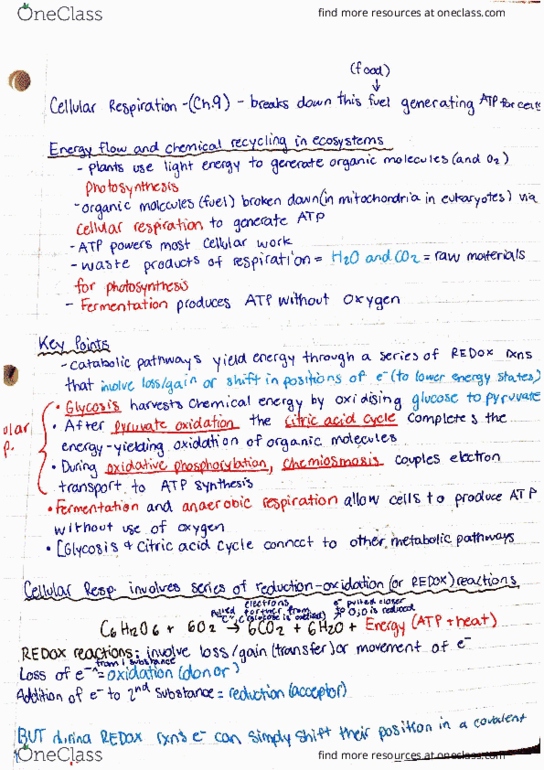 OneClass
find more resources at oneclass.com
(food)
Cellular Respiration -(Ch.9) - breaks down this fuel generating ATP for cells
Energy flow and chemical recycling in ecosystems
- plants use light energy to generate organic molecules (and O2)
photosynthesis
- organic molecules (fuel) broken down (in mitochondria in eukaryotes) via
cellular respiration to generate ATP
- ATP powers most cellular work
- waste products of respiration = H2O and CO2 = raw materials
for photosynthesis
- Fermentation produces ATP without oxygen
Key Points
- catabolic pathways yield energy through a series of REDOX rxns
that involve loss/gain or shift in positions of e- (to lower energy states)
• Glycosis harvests chemical energy by oxidising glucose to pyruvate
olar
p.
• After pyruvate oxidation the citric acid cycle completes the
energy-yielding oxidation of organic molecules
• During oxidative phosphorylation, chemiosmosis couples electron
transport to ATP synthesis
• Fermentation and anaerobic respiration allow cells to produce ATP
without use of oxygen
• [Glycosis & Citric acid cycle connect to other metabolic pathways
Cellular Resp involves series of reduction-oxidation (or REDOX) reactions
electrons
pulled further from
"C", (glucose is oxidised)
e- pulled closer
to O, O is reduced
C6H12O6 + 6O2 → 6CO2 + 6H2O + Energy (ATP + heat)
REDOX reactions: involve loss/gain (transfer) or movement of e-
from 1 substance
Loss of e- = oxidation (donor)
Addition of e- to 2nd substance = reduction (acceptor)
BUT during REDOX rxns e- can simply shift their position in a covalent
OneClass
find more resources at oneclass.com